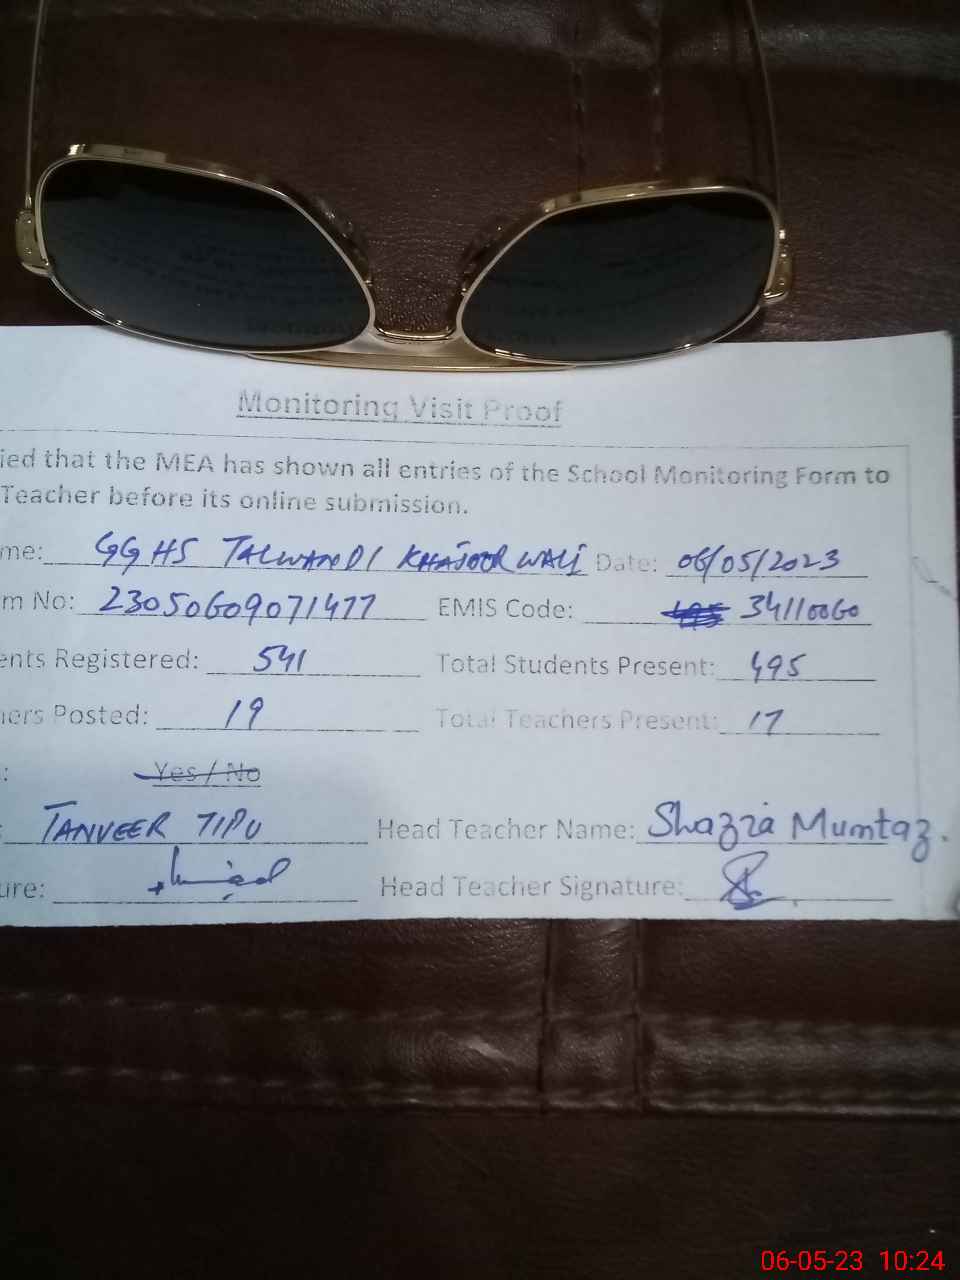 Monitoring Visit Proof
ied that the MEA has shown all entries of the School Monitoring Form to
Teacher before its online submission.
me: GGHS TALWANDI KHAJOOR WALI Date: 06/05/2023
m No: 23050609071477 EMIS Code: 34110060
ents Registered: 541 Total Students Present: 495
ers Posted: 19 Total Teachers Present: 17
: Yes / No
: TANVEER TIPU Head Teacher Name: Shazia Mumtaz.
ure: Head Teacher Signature:
06-05-23 10:24